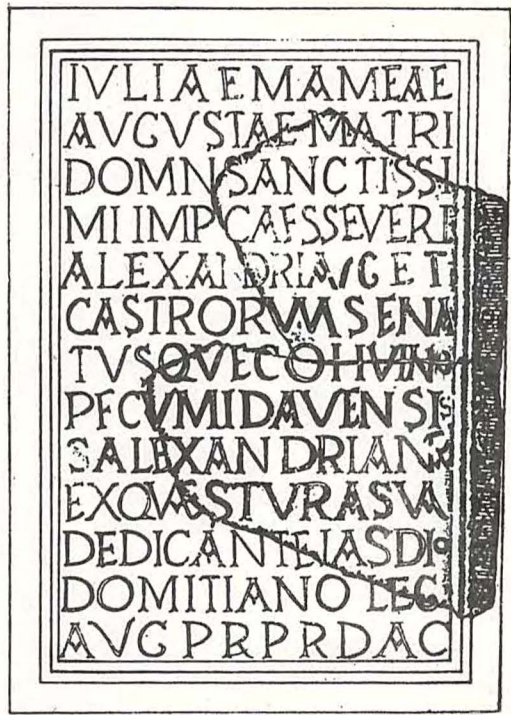 IVLIAE MAMEAE
AVGVSTAE MATRI
DOMN SANCTISSI
MI IMP CAES SEVERI
ALEXANDRI AVG ET
CASTRORVM SENA
TVSQVE COH VI N
PF CVMIDAVENSI
S ALEXANDRIANA
EX QVAESTVRA SVA
DEDICANTE IAS DIO
DOMITIANO LEG
AVG PR PR DAC